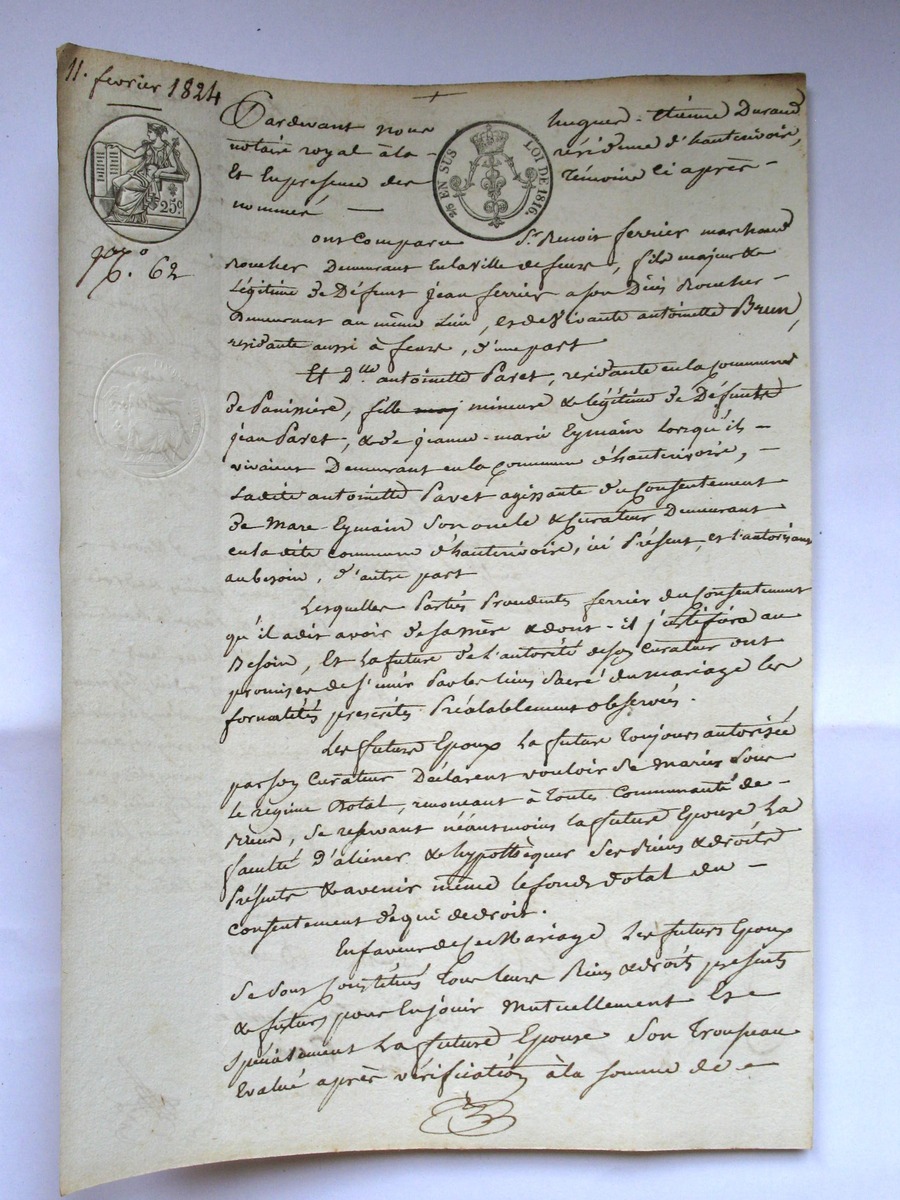 11. fevrier 1824
25c
EN SUS LOI DE 1816.
No. 62
Pardevant nous hugues-Etienne Durand
notaire royal à la résidence d'hauterivoire,
Et En presence des Témoins Ci après
nommés
ont Comparu Sr. Benoit ferrier marchand
Rocher Demeurant En la ville de feurs, fils majeur &
Légitime de Défunt jean ferrier a son Décès Rocher
Demeurant au même Lieu, et de Vivante antoinette Brun,
residante aussi à feurs, d'une part
Et Dlle. antoinette Paret, residante en la Commune
de Panissière, fille maj mineure & légitime de Défunts
jean Paret, & de jeanne-marie Eymain Lorsqu'ils
vivaient Demeurant en la Commune d'hauterivoire,
Ladite antoinette Paret agissante du Consentement
de Marc Eymain Son oncle & Curateur Demeurant
en la dite Commune d'hauterivoire, ici Présent, et l'autorisant
au besoin, d'autre part
Lesquelles Parties Procedants ferrier du Consentement
qu'il a dit avoir de sa mère & dont il justifiera au
Besoin, Et La future de L'autorité de son Curateur ont
promises de S'unir Par les liens Sacré du mariage les
formalités prescrites Préalablement observés.
Les futurs Epoux La future Toujours autorisée
par son Curateur Déclarent vouloir Se Marier Sous
le régime Dotal, renoncant à Toutes Communauté de
Biens, Se reservant néantmoins la future Epouse La
faculté D'aliener & hypothèquer Ses Biens & droits
Présents & avenir même le fonds dotal du
Consentement de qui de droit.
En faveur de Ce Mariage Les futurs Epoux
Se Sont Constitués Tous leurs Biens & droits présents
& futurs pour En jouir Mutuellement Et
Spécialement La future Epouse Son Troupeau
Evalué après vérification à la Somme de